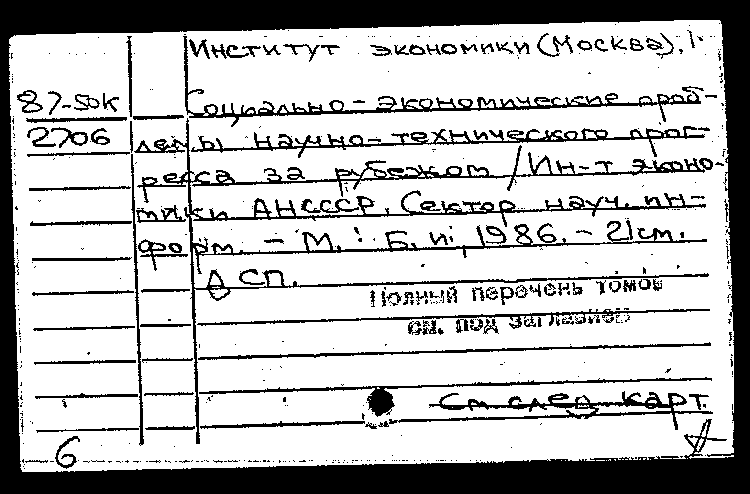 Институт экономики (Москва).
87-50к Социально-экономические проб-
2706 лемы научно-технического прог-
ресса за рубежом / Ин-т эконо-
мики АНСССР, Сектор науч. ин-
форм. - М. : Б. и., 1986. - 21см.
ДСП.
Полный перечень томов
см. под заглавием
См след карт
6